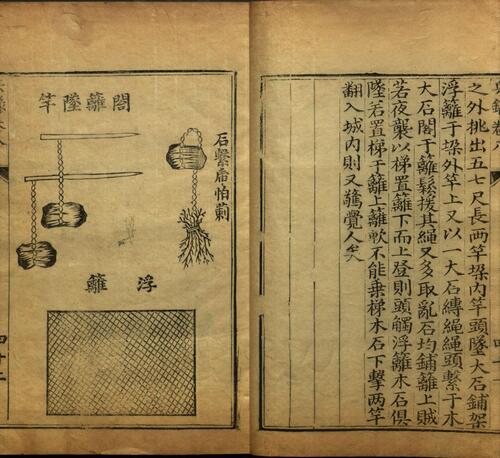 之外挑出五七尺長兩竿垜內竿頭墜大石鋪架
浮籬于垜外竿上又以一大石縛繩繩頭繫于木
大石閣于籬鬆援其繩又多取亂石均鋪籬上賊
若夜襲以梯置籬下而上登則頭觸浮籬木石俱
墜若置梯于籬上籬軟不能乗梯木石下擊兩竿
翻入城內則又驚覺人矣
閣籬墜竿
石繫扂怕蒯
浮籬
四十二